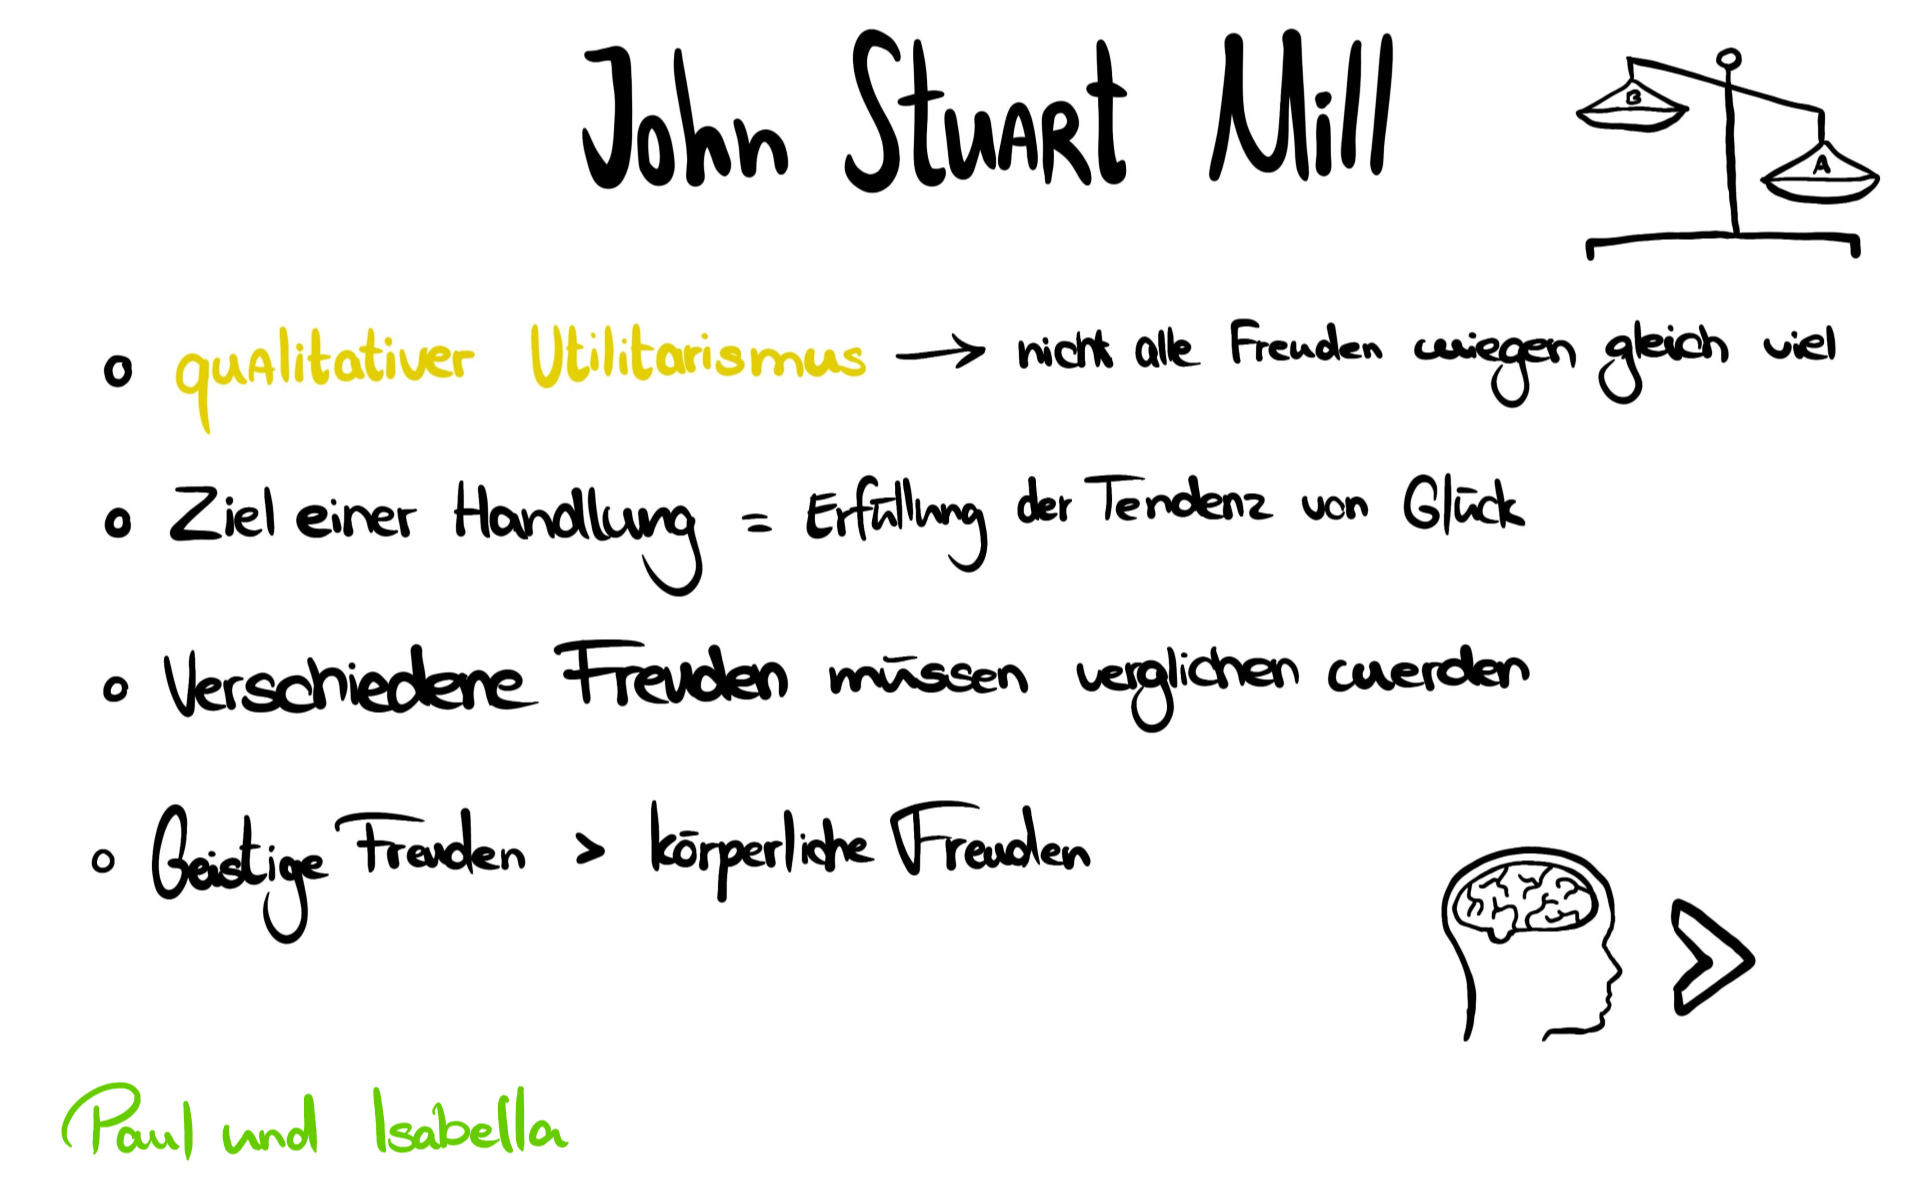 John Stuart Mill
B
A
qualitativer Utilitarismus → nicht alle Freuden wiegen gleich viel
Ziel einer Handlung = Erfüllung der Tendenz von Glück
Verschiedene Freuden müssen verglichen werden
Geistige Freuden > körperliche Freuden
>
Paul und Isabella